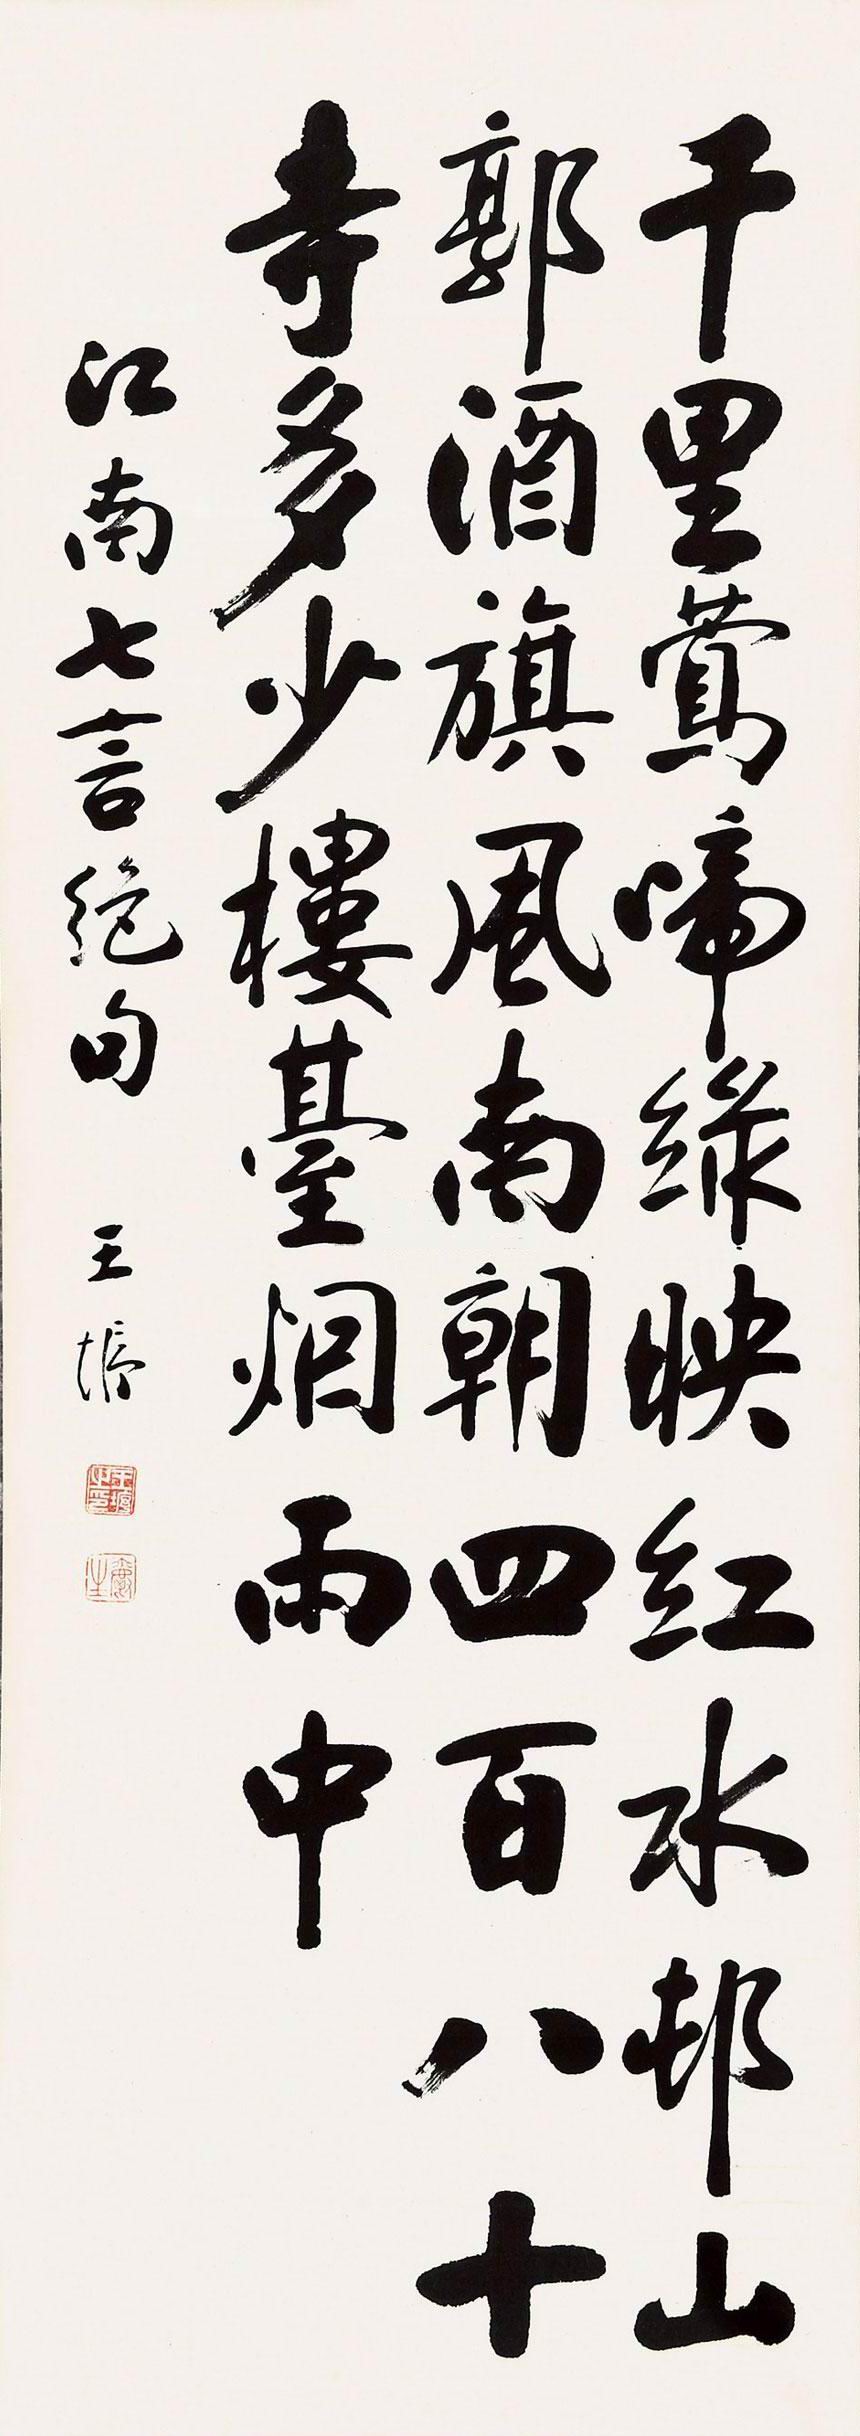 千里鶯啼綠映紅水邨山
郭酒旗風南朝四百八十
寺多少樓臺烟雨中
江南七言絕句 王垿
王垿之印
爵生